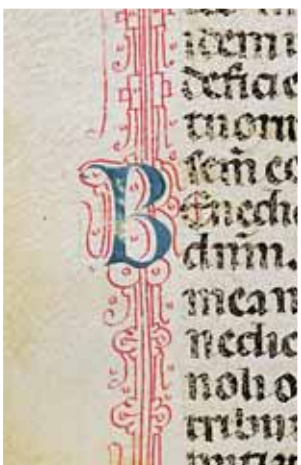 idem i
deficie
tuoru
sem̄ eo
Benedic
dn̄m.
mea n
nedic
noli o
tribu